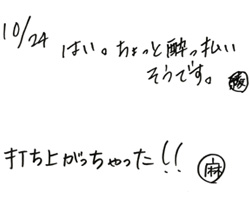 10/24
はい。ちょっと酔っ払い
そうです。
打ち上がっちゃった!! 麻